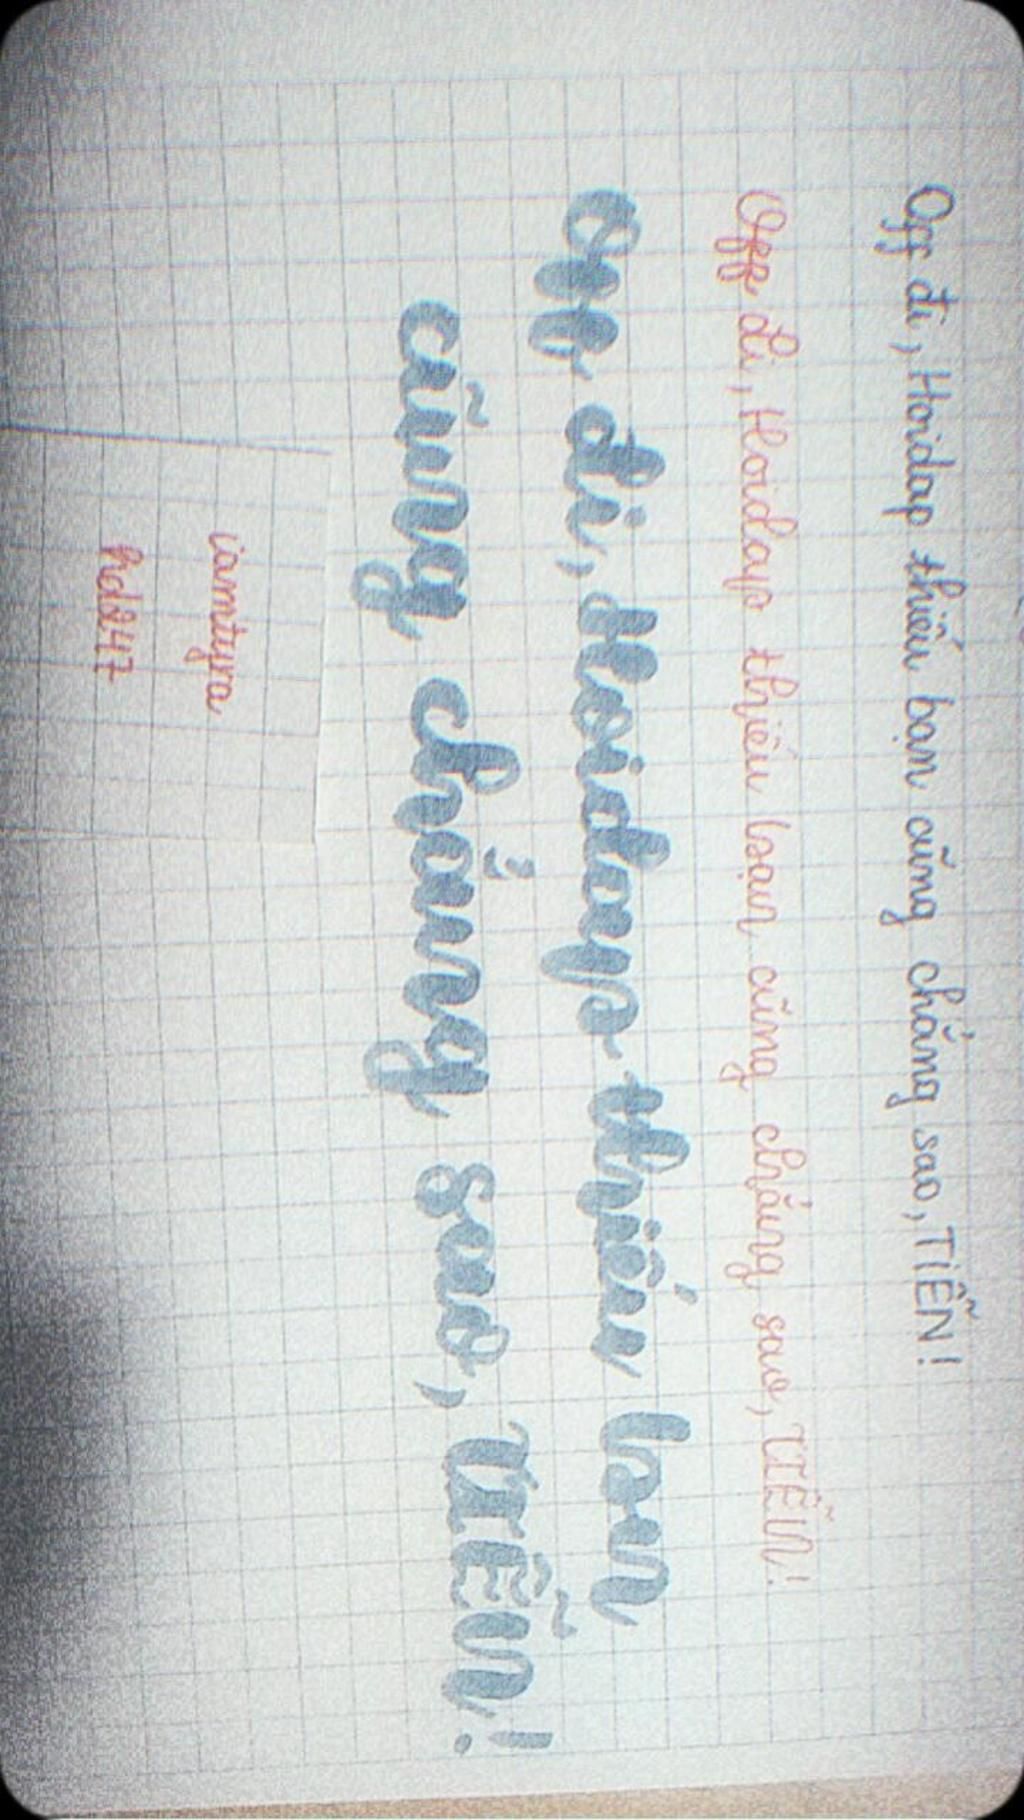 Off đi, Hoidap thiếu bạn cũng chẳng sao, TIỄN!
Off đi, Hoidap thiếu bạn cũng chẳng sao, TIỄN!
Off đi, Hoidap thiếu bạn
cũng chẳng sao, TIỄN!
iamtyra
hd247